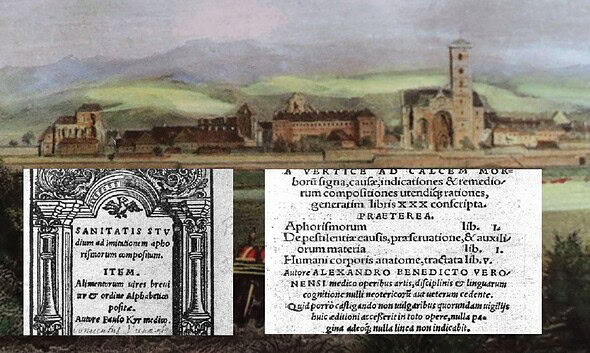 SANITATIS STV
dium ad imitationem apho
rismorum compositum.
ITEM.
Alimentorum uires breui
ter & ordine Alphabetico
positæ.
Autore Paulo Kyr medico.
A VERTICE AD CALCEM MOR-
borū signa, causæ, indicationes & remedio-
rum compositiones utendiq́; rationes,
generatim libris XXX conscripta.
PRÆTEREA.
Aphorismorum lib. I.
De pestilentiæ causis, præseruatione, & auxili-
orum materia lib. I.
Humani corporis anatome, tractata lib. V.
Autore ALEXANDRO BENEDICTO VERO-
NENSI medico operibus artis, disciplinis & linguarum
cognitione nulli neotericorū aut ueterum cedente.
Quid porrò castigando non uulgaribus quorundam uigilijs
huic æditioni accesserit in toto opere, nulla pa-
gina adeoq́; nulla linea non indicabit.